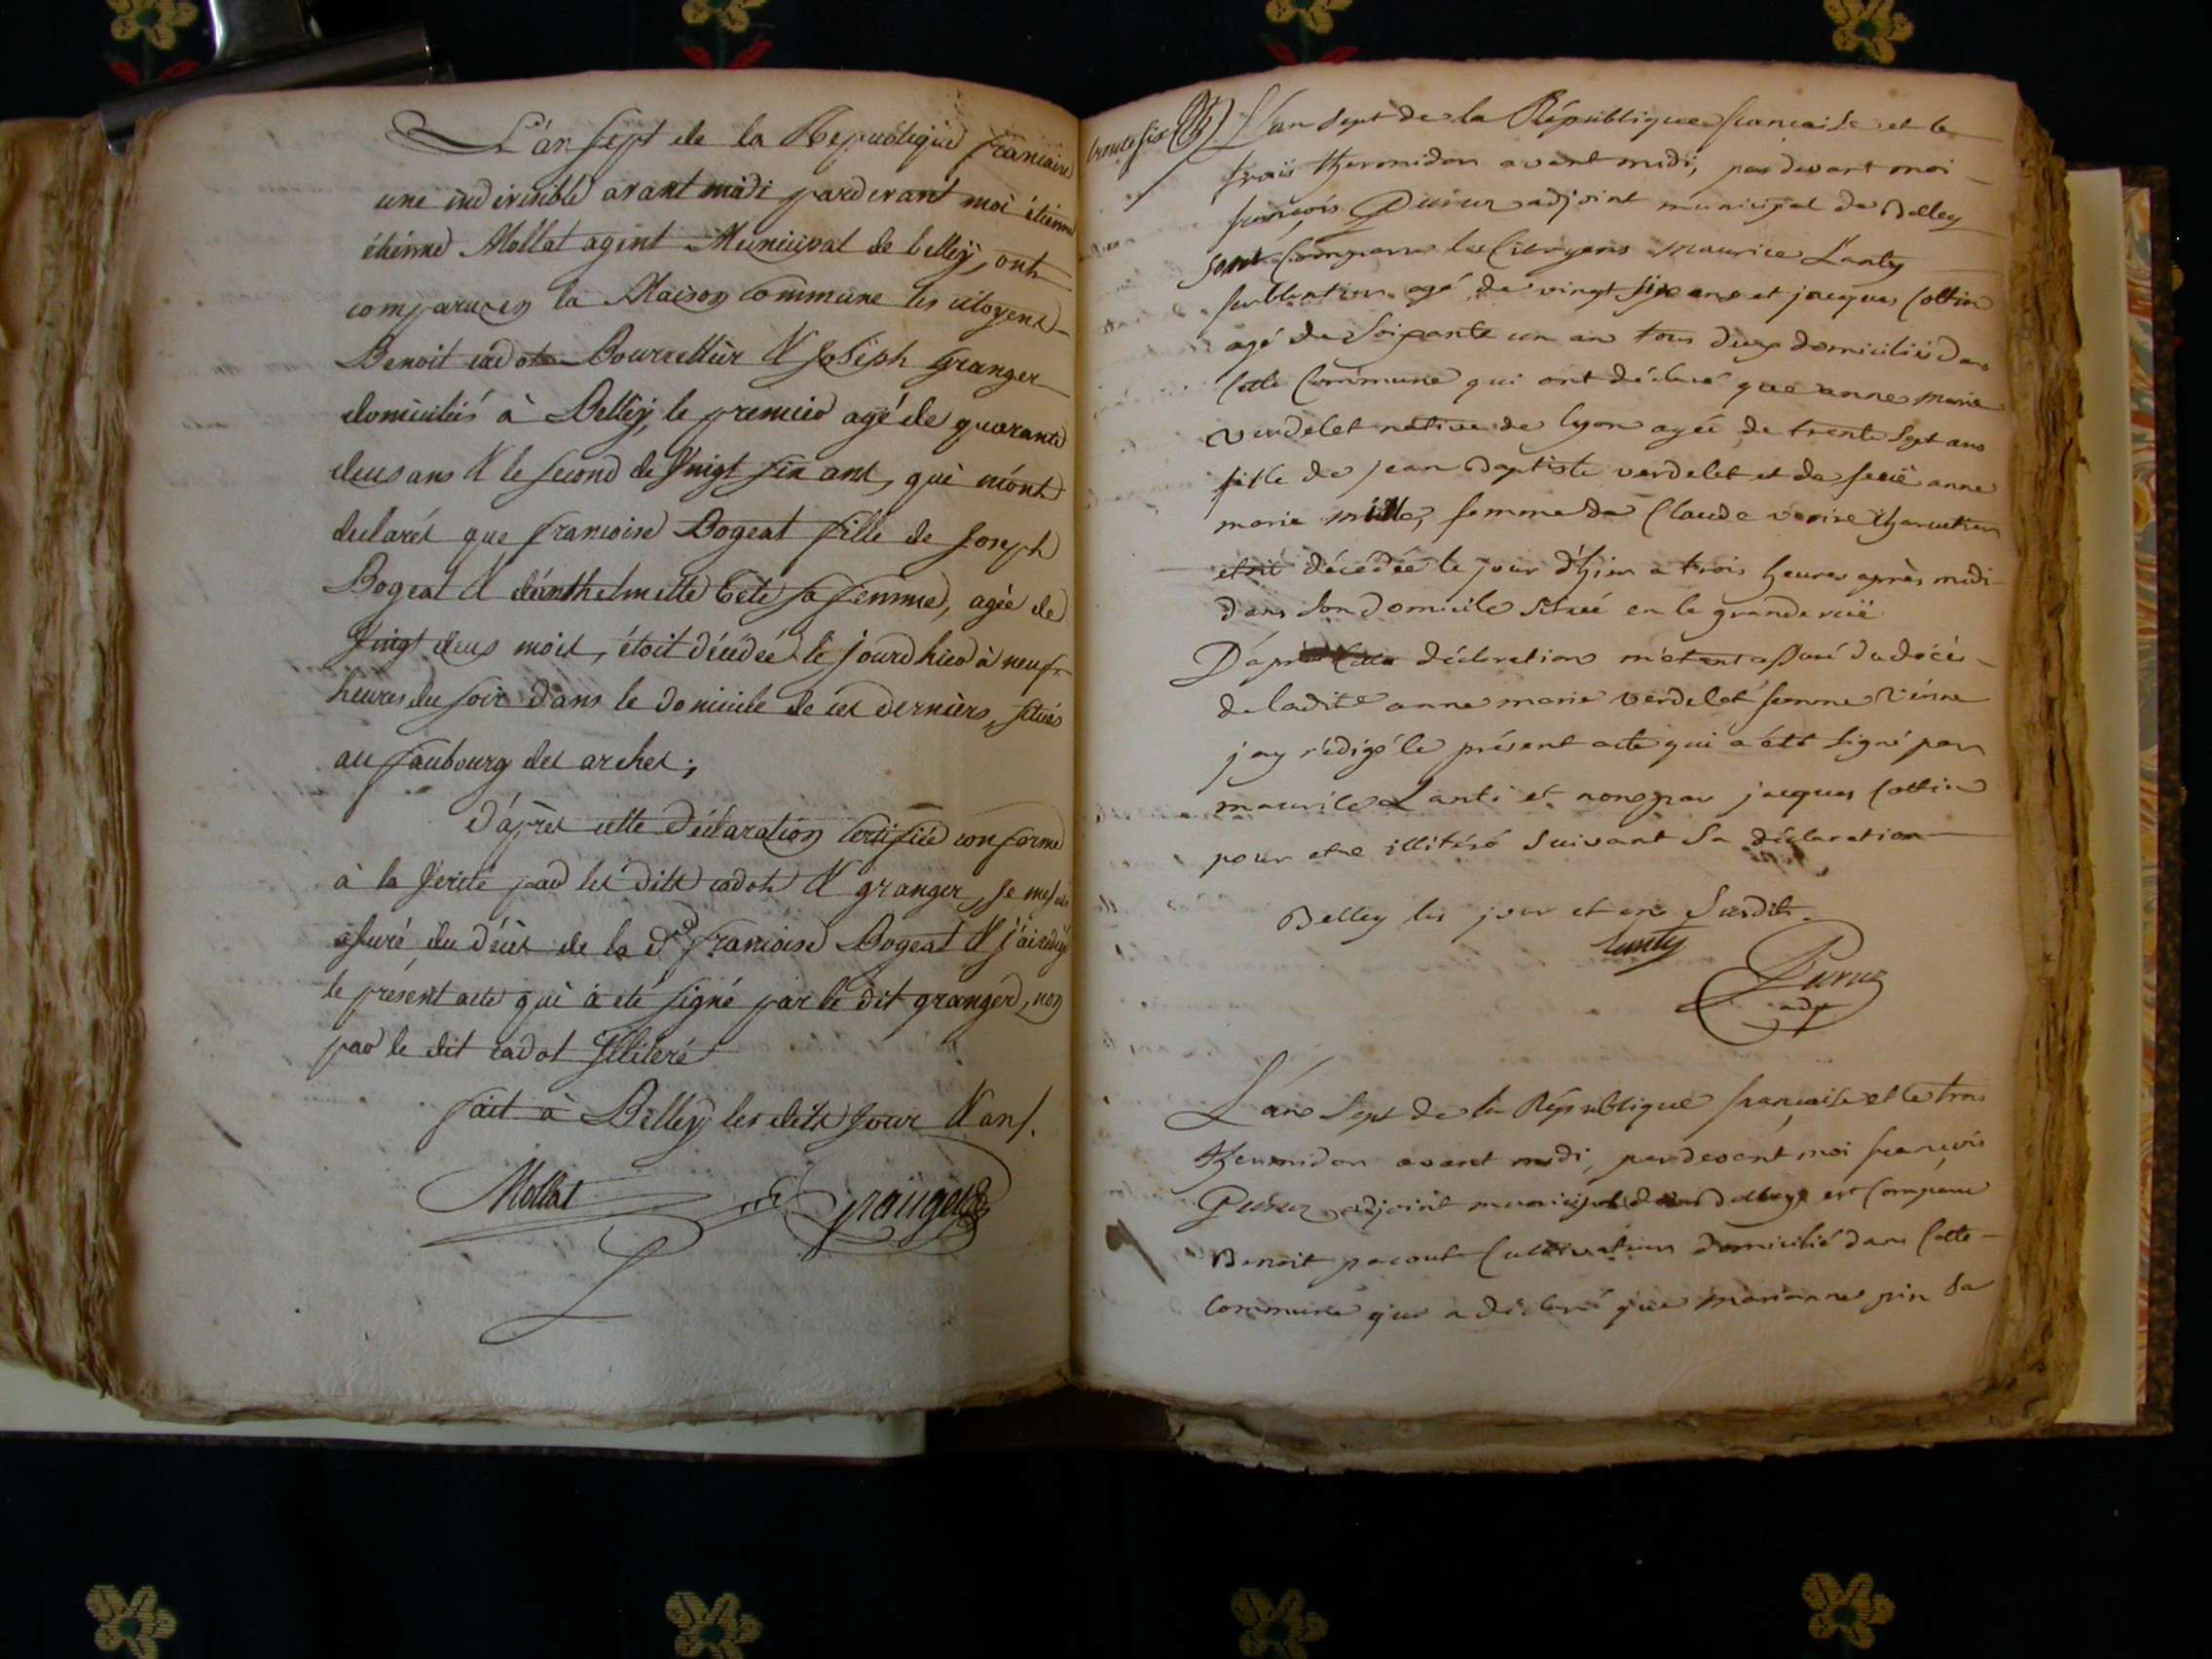 L'an sept de la Republique francaise
une indivisible avant midi pardevant moi étienne
étienne Mollat agent Municipal de belley, ont
comparu en la Maison Commune les citoyens
Benoit cadot Bourrellier & Joseph granger
domiciliés à Belley, le premier agé de quarante
deus ans & le second de Vingt six ans, qui m'ont
declarés que francoise Bogeat fille de Joseph
Bogeat & d'anthelmette Bete sa femme, agée de
Vingt deus mois, étoit décédée le jourd hier à neuf
heures du soir dans le domicile de ces derniers, situés
au faubourg des arches;
d'après cette déclaration certifiée conforme
à la Verité par les dits cadot & granger, je me suis
assuré du décès de la de francoise Bogeat & j'ai redigé
le présent acte qui à eté signé par le dit granger, non
par le dit cadot Illiteré
fait à Belley les dits jour & an.
Mollat granger
trente six L'an sept de la République francaise et le
trois thermidon avant midi, par devant moi
françois adjoint municipal de Belley
sont comparu les Citoyens maurice Lanty
agé de vingt six ans et jacques Cottin
agé de Soixante un an tous deux domiciliés dans
Cette Commune qui ont déclaré que anne marie
verdelet native de lyon agée de trente sept ans
fille de jean Baptiste verdelet et de feue anne
marie mille, femme de Claude
étoit décédée le jour d'hier a trois heures après midi
dans Son domicile situé en la grande rue
D'après Cette déclaration m'étant assuré du décès
de ladite anne marie verdelet femme
j'ay rédigé le présent acte qui a été Signé par
maurice Lanti et non par jacques Cottin
pour etre illitéré Suivant Sa déclaration
Belley les jour et an Susdits.
Lanty
adj
L'an Sept de la République francaise et le trois
thermidon avant midi, pardevant moi françois
adjoint municipal de Belley est Comparu
Benoit pacout Cultivateur domicilié dans Cette
Commune qui a déclaré que marianne pin Sa